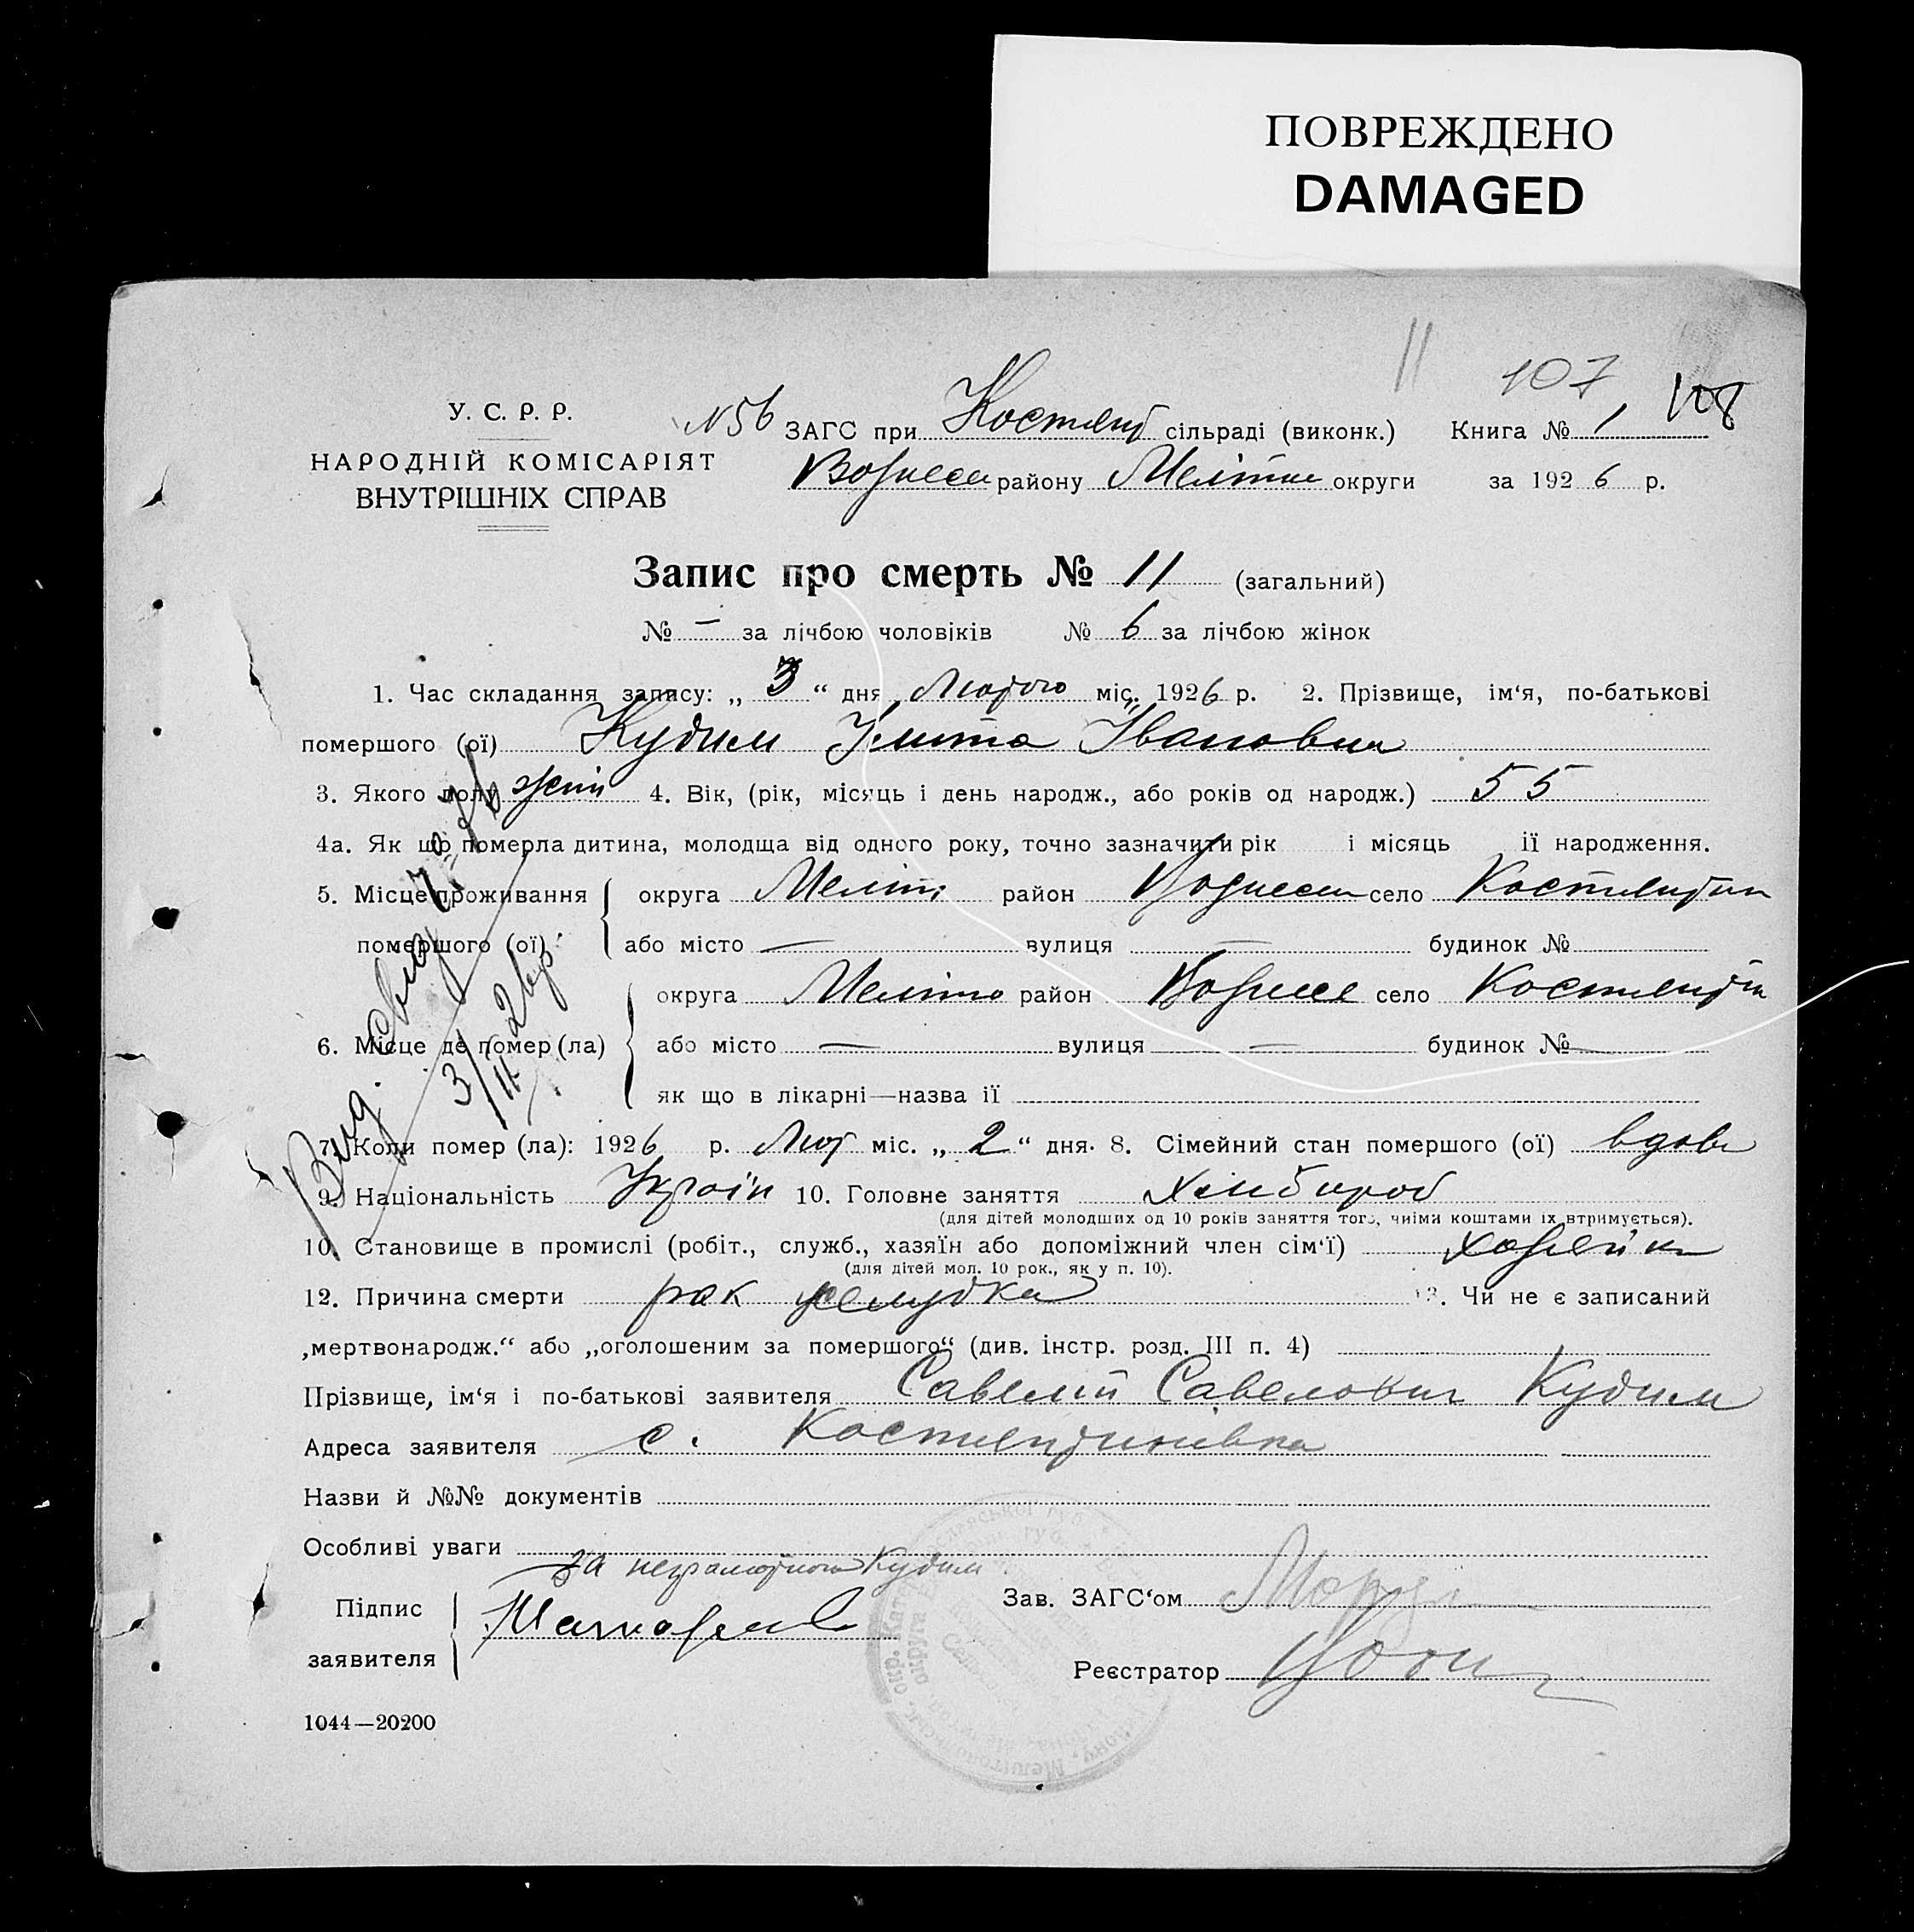 ПОВРЕЖДЕНО
DAMAGED
11
107
108
У. С. Р. Р.
НАРОДНІЙ КОМІСАРІЯТ
ВНУТРІШНІХ СПРАВ
№56 ЗАГС при Костянт сільраді (виконк.) Книга № 1
Вознесен району Меліто округи за 1926 р.
Запис про смерть № 11 (загальний)
№ — за лічбою чоловіків № 6 за лічбою жінок
1. Час складання запису: „ 3 “ дня Лютого міс. 1926 р. 2. Прізвище, ім‘я, по-батькові
помершого (ої) Кудим Улита Івановна
3. Якого полу жін 4. Вік, (рік, місяць і день народж., або років од народж.) 55
4а. Як що померла дитина, молодща від одного року, точно зазначити рік і місяць ії народження.
5. Місце проживання округа Меліт район Вознесен село Костянтин
помершого (ої) або місто — вулиця — будинок №
округа Меліто район Вознесе село Костянтин
6. Місце де помер (ла) або місто — вулиця — будинок № —
як що в лікарні—назва ії
7. Коли помер (ла): 1926 р. Лют міс. „ 2 “ дня. 8. Сімейний стан помершого (ої) вдова
9. Національність Україн 10. Головне заняття хлібороб
(для дітей молодших од 10 років заняття того, чиїми коштами їх втримується).
10. Становище в промислі (робіт., служб., хазяїн або допоміжний член сім‘ї) хозяйка
(для дітей мол. 10 рок., як у п. 10).
12. Причина смерти рак желудка 13. Чи не є записаний
„мертвонародж.“ або „оголошеним за помершого“ (див. інстр. розд. III п. 4)
Прізвище, ім‘я і по-батькові заявителя Савелий Савелович Кудим
Адреса заявителя с. Костянтинівка
Назви й №№ документів
Особливі уваги
за неграмотного Кудим
Підпис
заявителя
Зав. ЗАГС‘ом
Реєстратор
1044—20200
Вид.
3/II 26р.